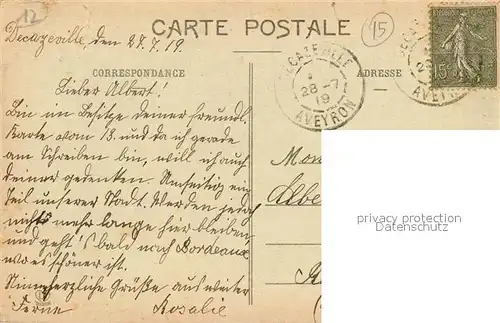 12
CARTE POSTALE
15
Decazeville, den 27.7.19.
DECAZEVILLE
28-7
19
AVEYRON
15c
CORRESPONDANCE
ADRESSE
Lieber Albert!
Bin im Besitze deiner freundl.
Karte vom 18. und da ich gerade
am Schreiben bin, will ich auch
deiner gedenken. Umseitig ein
Teil unserer Stadt. Werden jedoch
nicht mehr lange hier bleiben
und geht's bald nach Bordeaux
wo es schöner ist.
herzliche Grüße aus weiter
Ferne Rosalie
Mon
Albe
privacy protection
Datenschutz